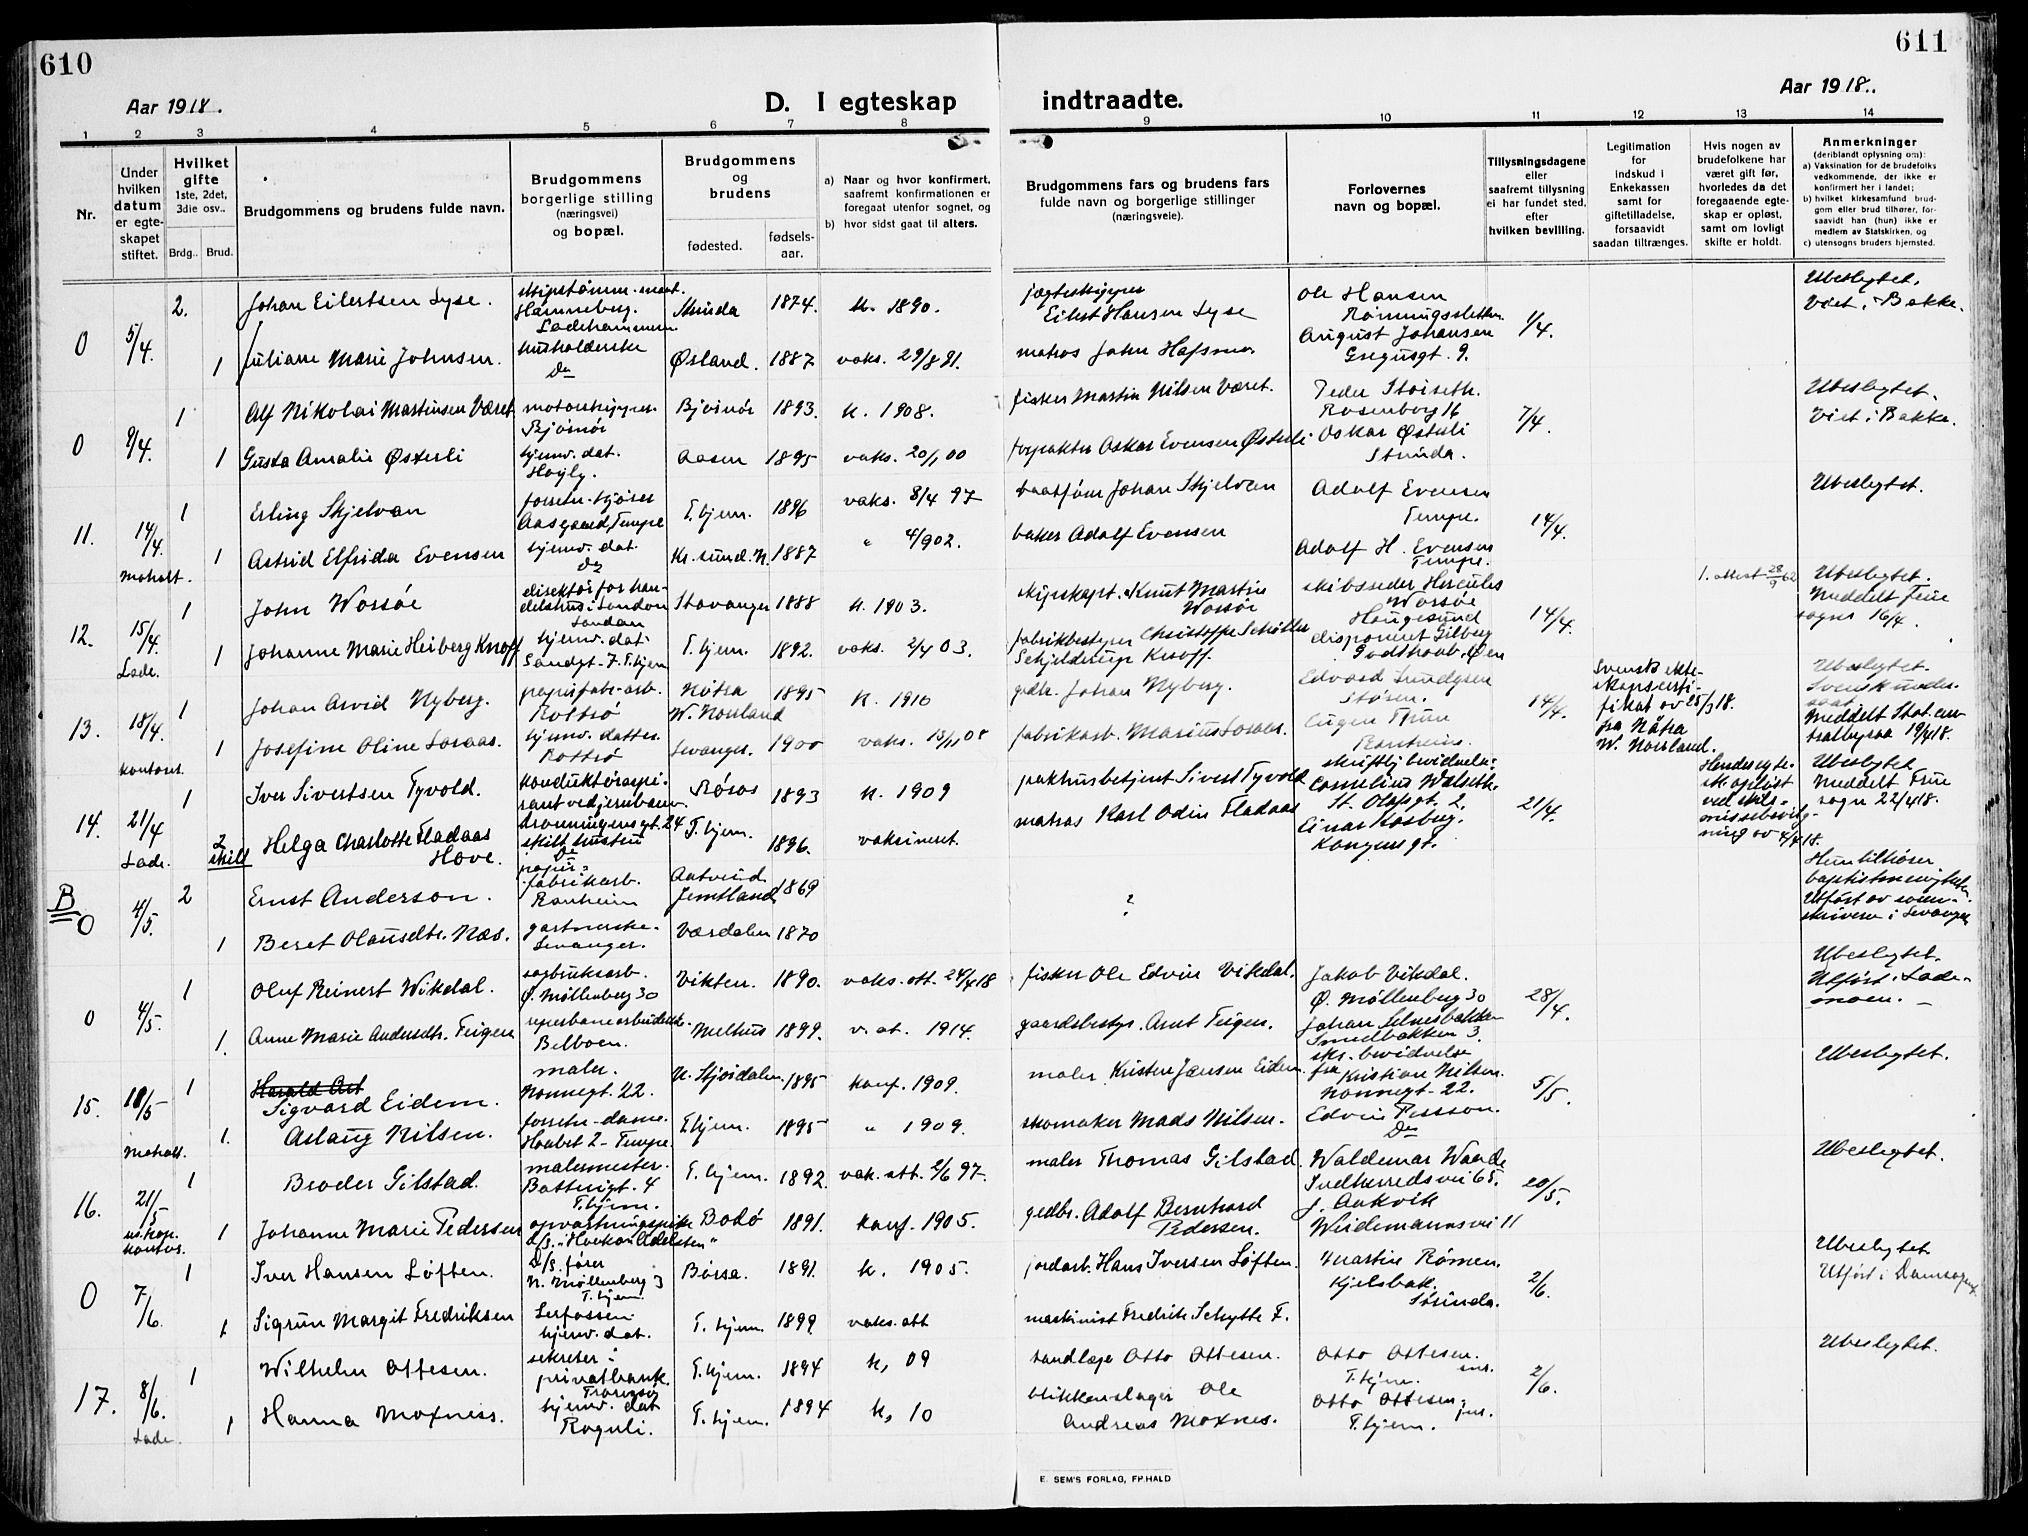 610
611
Aar 1918.
D. I egteskap indtraadte.
Aar 1918.
1 2 3 4 5 6 7 8 9 10 11 12 13 14
Nr.
Under hvilken datum er egteskapet stiftet.
Hvilket gifte
1ste, 2det, 3die osv..
Brdg.. Brud.
Brudgommens og brudens fulde navn.
Brudgommens borgerlige stilling (næringsvei) og bopæl.
Brudgommens og brudens
fødested.
fødselsaar.
a) Naar og hvor konfirmert, saafremt konfirmationen er foregaat utenfor sognet, og
b) hvor sidst gaat til alters.
Brudgommens fars og brudens fars fulde navn og borgerlige stillinger (næringsveie).
Forlovernes navn og bopæl.
Tillysningsdagene eller saafremt tillysning ei har fundet sted, efter hvilken bevilling.
Legitimation for indskud i Enkekassen samt for giftetilladelse, forsaavidt saadan tiltrænges.
Hvis nogen av brudefolkene har været gift før, hvorledes da det foregaaende egteskap er opløst, samt om lovligt skifte er holdt.
Anmerkninger
(deriblandt oplysning om):
a) Vaksination for de brudefolks vedkommende, der ikke er konfirmert her i landet;
b) hvilket kirkesamfund brudgom eller brud tilhører, forsaavidt han (hun) ikke er medlem av Statskirken, og
c) utensogns bruders hjemsted.
0 5/4. 2. Johan Eilertsen Lyse. Hammeberg. Ladehammeren Strinda 1874. k. 1890. jægteskipper Eilert Hansen Lyse Ole Hansen Rønningsletten 1/4. Ubeslegtet. Viet i Bakke.
1 Juliane Marie Johnsen. husholderske Do Ørland. 1887 vaks. 29/8 91. matros John Hafsmo August Johansen Gregusgt. 9.
0 9/4. 1 Alf Nikolai Martinsen Været motorskipper. Bjørnør Bjørnør 1893. k. 1908. fisker Martin Nilsen Været. Peder Støiseth. Rosenborg 16 7/4. Ubeslegtet. Viet i Bakke.
1 Gusta Amalie Østerli hjemv. dat. Høgly. Aasen 1895 vaks. 20/1 00 forpakter Oskar Evensen Østerli Oskar Østerli Strinda.
11. 14/4. Moholt. 1 Erling Skjelvan Aasgaard, Tempe T.hjem. 1896 vaks. 8/4 97 Johan Skjelvan Adolf Evensen Tempe. 14/4. Ubeslegtet.
1 Astrid Elfrida Evensen hjemv. dat. Do Kr. sund. N. 1887 " 4/902. baker Adolf Evensen Adolf H. Evensen Tempe.
12. 15/4. Lade. 1 John Worsøe direktør for handelshus i London London Stavanger 1888 k. 1903. skipskapt. Knut Martin Worsøe skibsreder Hercules Worsøe Haugesund 14/4. 1. attest 28/9 62 Ubeslegtet. Meddelt Frue sogn 16/4.
1 Johanne Marie Heiberg Knoff hjemv. dat. Sandgt. 7. T.hjem T.hjem. 1892. vaks. 2/4 03. fabrikbestyrer Christoffer Schøller Schjelderup Knoff. disponent Gilberg Godthaab, Øen
13. 18/4. kontoret. 1 Johan Arvid Nyberg. papirfabr. arb. Rotsø Nåtra W. Norrland 1895 k. 1910 Johan Nyberg. Edvard Størem. 14/4. Svensk ektekapscertifikat av 25/3 18. fra Nåtra W. Norrland. Ubeslegtet. Svensk Meddelt Stat. centralbyraa 19/4 18.
1 Josefine Oline Loraas. hjemv. datter. Rotsø Levanger. 1900 vaks. 13/11 08 fabrikarb. Marius Loraas. Eugen Ranheim.
14. 21/4 Lade. 1 Iver Sivertsen Tyvold. konduktøraspirant ved jernbanen. dronningensgt. 24 Røros 1893 k. 1909 pakhusbetjent Sivert Tyvold skriftlig bevidnelse: Cornelius Wolseth St. Olafsgt. 2. 21/4. Hendes egtesk. opløst ved skilsmissebevilgning av 4/4 18. Ubeslegtet Meddelt Frue sogn 22/4 18.
2 skilt Helga Charlotte Fladaas Hove. skilt hustru Do T.hjem. 1896. vaksineret. matros Karl Odin Fladaas Einar Kosberg. Kongensgt.
B 0 4/5. 2 Ernst Anderson. papirfabrikarb. Ranheim Jemtland 1869 ? Hun tilhører baptistmenigheten Utført av sorenskriveren i Levanger
1 Beret Olausdtr. Næs. gartnerske. Levanger. Værdalen 1870
0 4/5. 1 Oluf Reinert Wikdal. sagbruksarb. Ø. Møllenberg 30 Vikten. 1890. vaks. att. 24/4 18 fisker Ole Edvin Vikdal. Jakob Vikdal. Ø. Møllenberg 30 28/4. Ubeslegtet. Utført i Lademoen.
1. Anne Marie Andersdtr. Teigen reperbanearbeiderske Belboen. Melhus 1899. v. at. 1914. gaardsbestyr. Arnt Teigen. Johan Selnesbakken Smedbakken 3.
15. 10/5 Moholt. 1 Harald Art Sigvard Eidem. maler. Nonnegt. 22. N. Stjørdalen 1895 konf. 1909. maler Kristen Jensen Eidem skr. bevidnelse fra Kristian Nilsen. Nonnegt. 22. 5/5. Ubeslegtet.
1. Aslaug Nilsen. forretn. dame. Tempe T.hjem. 1895 " 1909. skomaker Mads Nilsen. Edvin Persson. Do
16. 21/5 kontor. 1 Broder Gilstad. malermester. Batterigt. 4 T.hjem. T.hjem. 1892. vak. att. 2/6 97. maler Thomas Gilstad. Waldemar Waade Indherredsvei 65. 20/5. Ubeslegtet.
1 Johanne Marie Pedersen opvartningspike D/S. "Haakon Adelsten" Bodø 1891. konf. 1905. gedbr. Adolf Bernhard Pedersen. J. Aakvik Weidemannsvei 11
0 7/6. 1 Iver Hansen Løften. D/S. fører N. Møllenberg 3 T.hjem. Børsa. 1891. k. 1905. jordarb. Hans Iversen Løften. Martin Rømen. Kjelsbak. Strinda. 2/6. Ubeslegtet Utført i
1 Sigrun Margit Fredriksen Lerfossen. hjemv. dat. T. hjem. 1899. vaks. att maskinist Fredrik Schytte F.
17. 8/6. Lade. 1 Wilhelm Ottesen. sekretær i privatbank. T.hjem. 1894 k, 09 tandlæge Otto Ottesen. Otto Ottesen. sen. T.hjem. 2/6. Ubeslegtet.
1 Hanna Moxness. hjemv. dat Rognli. T.hjem. 1894 k, 10 blikkenslager Ole Andreas Moxnes. Otto Ottesen jun. T.hjem.
E. SEM'S FORLAG, FR.HALD